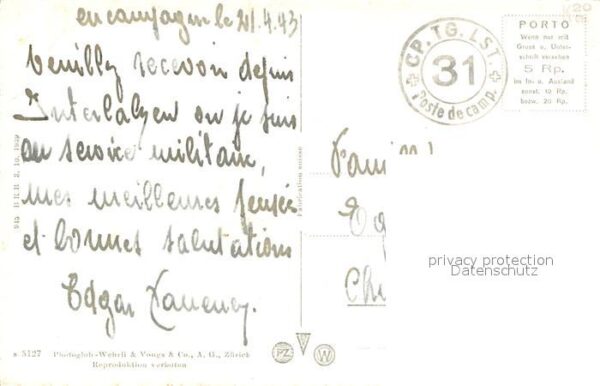 en campagne le 21.4.43
Veuillez recevoir depuis
Interlaken ou je suis
au service militaire,
mes meilleures pensées
et bonnes salutations
Edgar
CP. TG. LST.
31
Poste de camp.
PORTO
Wenn nur mit
Gruss u. Unter-
schrift versehen
5 Rp.
im In- u. Ausland
sonst 10 Rp.
bezw. 20 Rp.
Fabrication suisse
privacy protection
Datenschutz
5127 Photoglob-Wehrli & Vouga & Co., A. G., Zürich
Reproduktion verboten
PZ
V
W